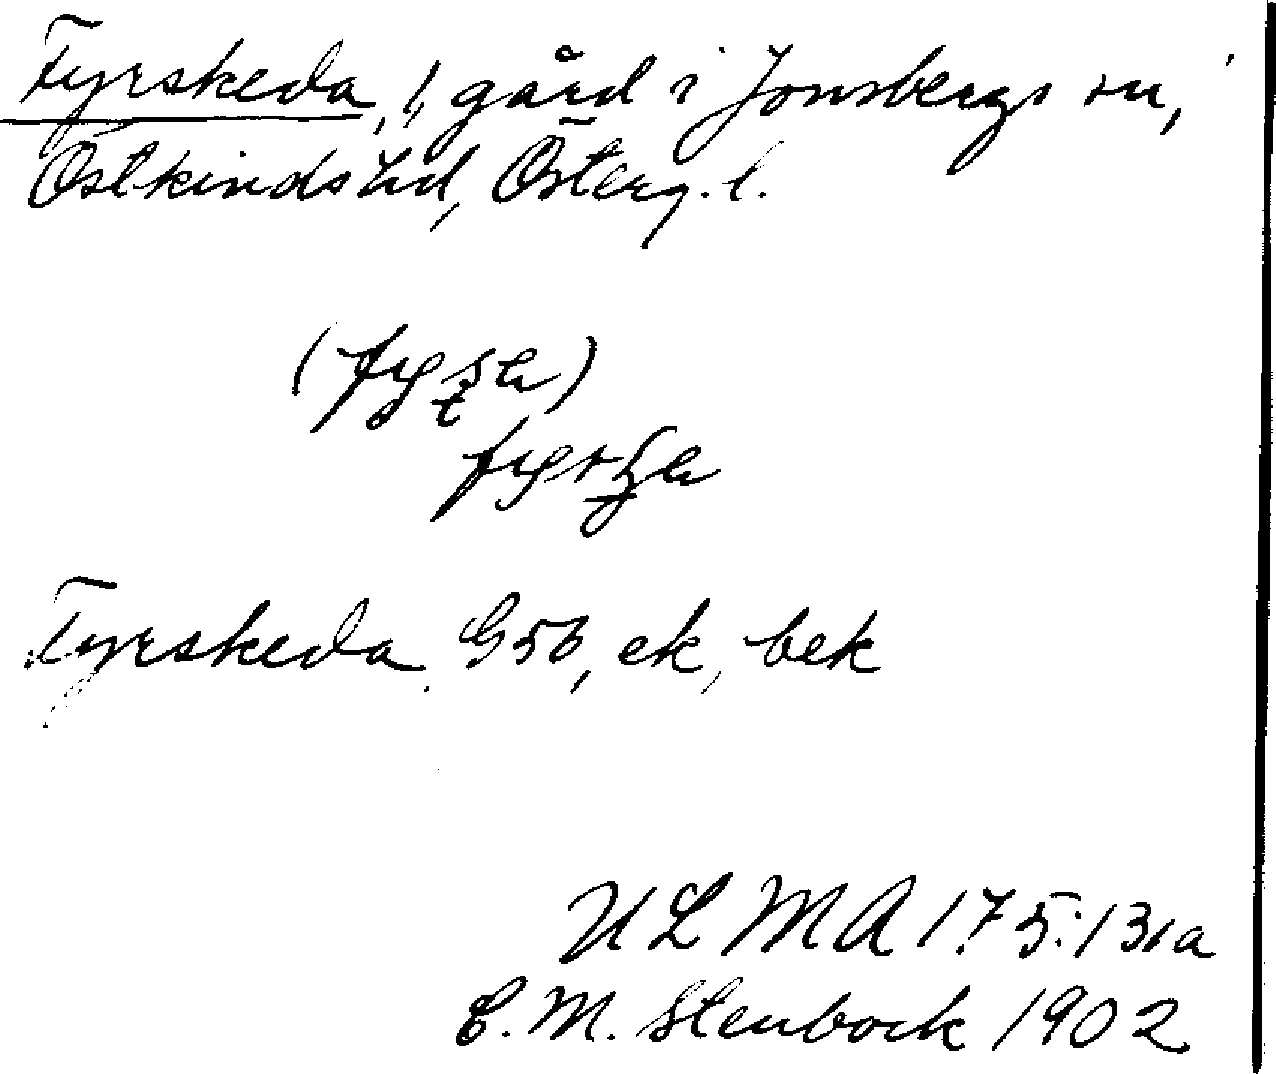 Fyrskeda, 1, gård i Jonsbergs sn,
Östkinds hd, Österg. l.
Fyrskeda G56, ek, bek
ULMA 175:131a
C. M. Stenbock 1902